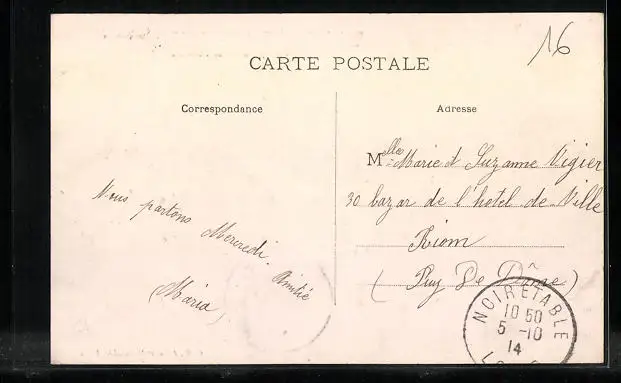 16
CARTE POSTALE
Correspondance
Adresse
Nous partons Mercredi.
Amitié
(Maria)
Melles Marie et Suzanne Vigier
30 bazar de l'hotel de Ville
Riom
(Puy De Dôme)
NOIRETABLE
10 50
5 -10
14